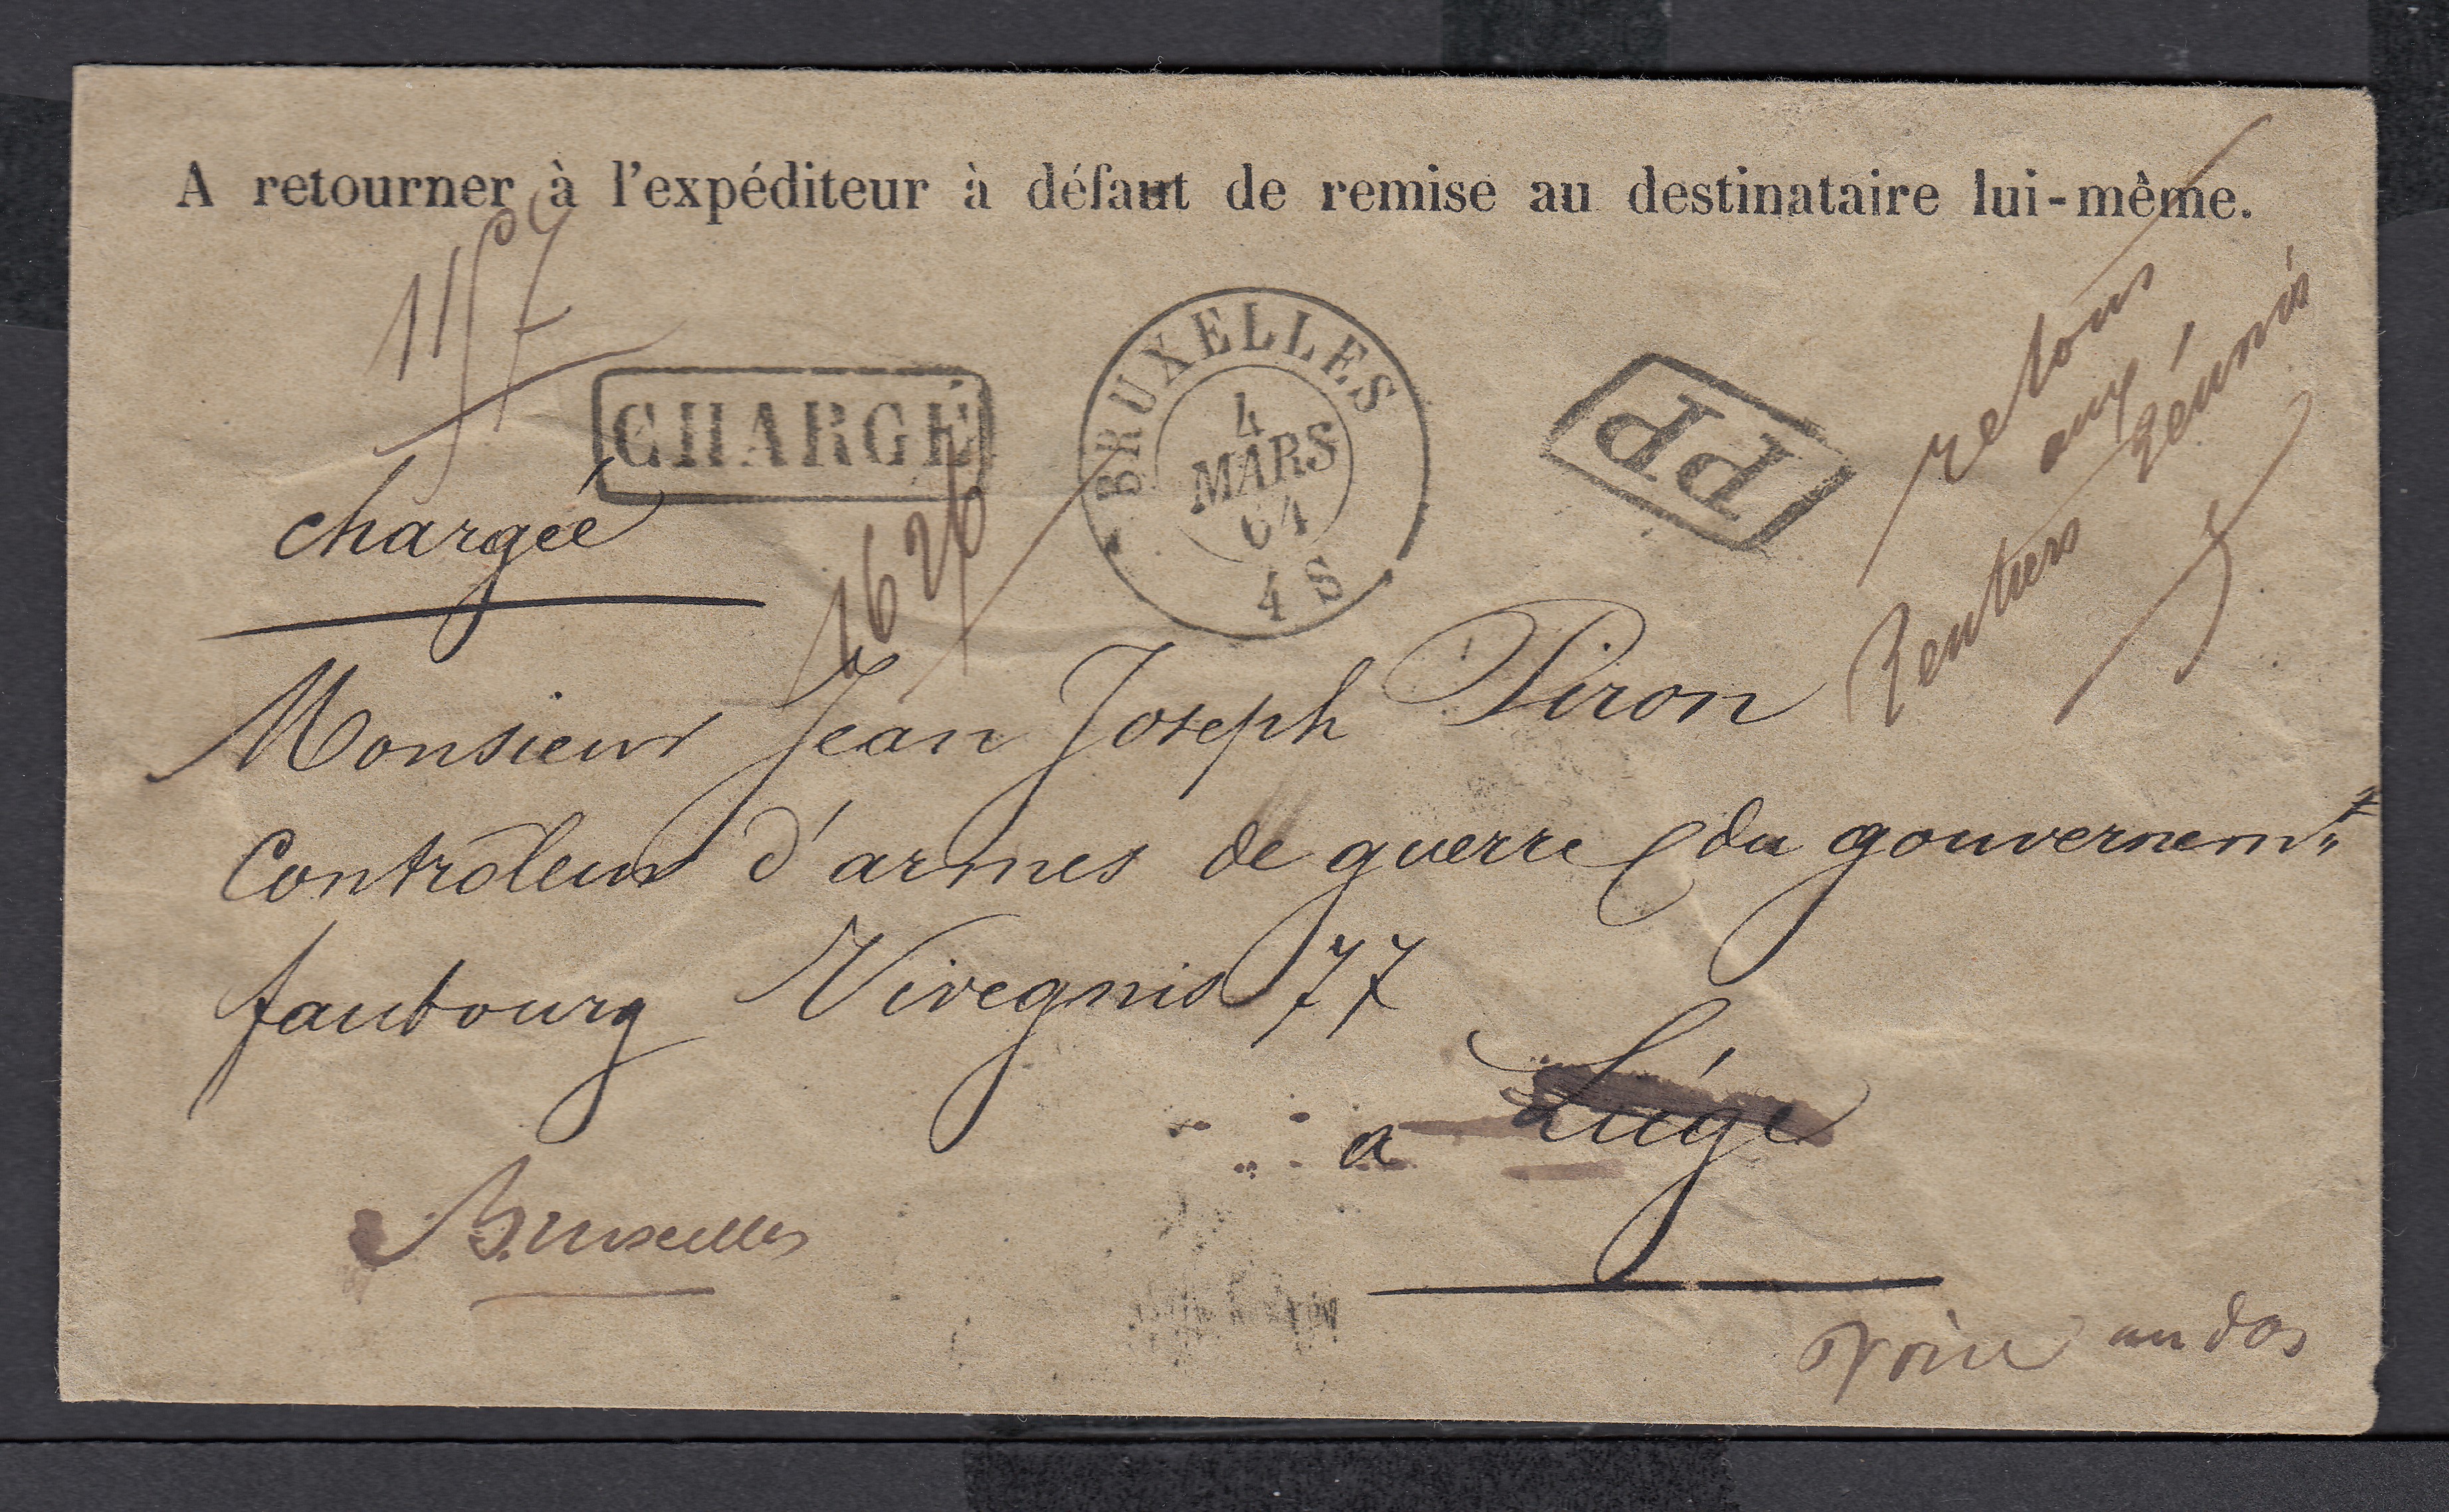 A retourner à l'expéditeur à défaut de remise au destinataire lui-même.
CHARGÉ
BRUXELLES
4
MARS
64
4 S
PP
retour
aux
Rentiers Réunis
chargée
1626
Monsieur Jean Joseph Piron
Contrôleur d'armes de guerre du gouvernemt
faubourg Vivegnis 77
a Liége
Bruxelles
voir au dos